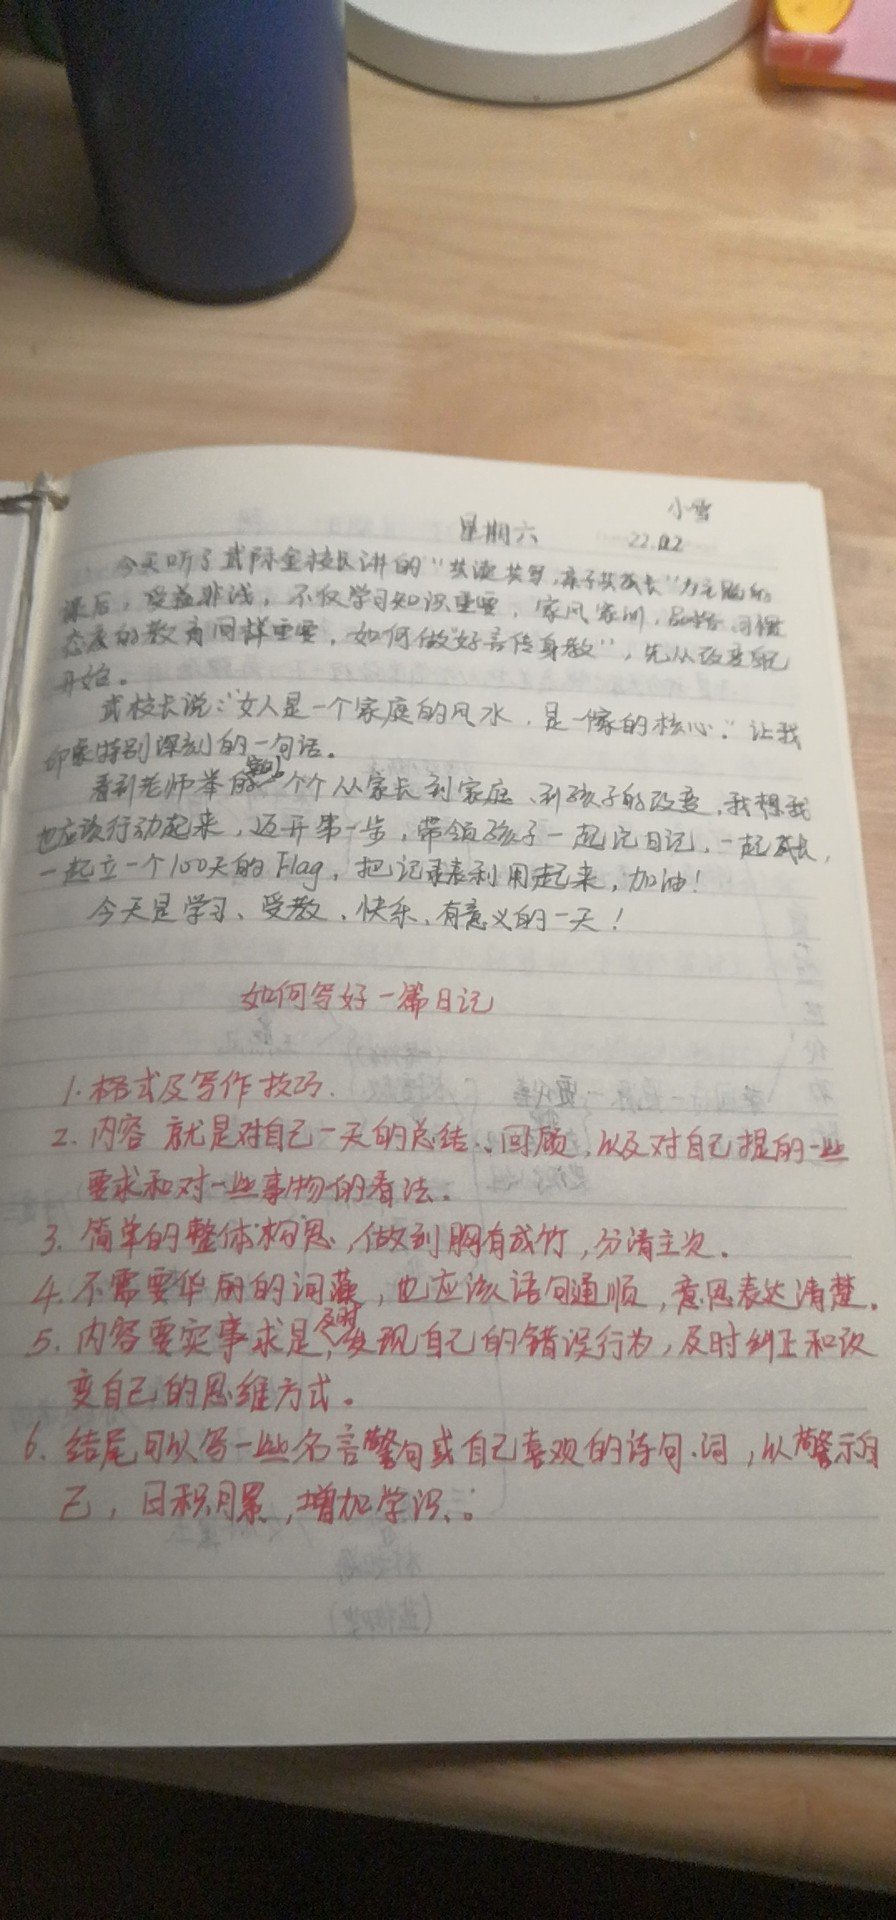 小雪
星期六 22.02
今天听了武际金校长讲的“共读共写,亲子共成长”为主题的
课后,受益非浅,不仅学习知识重要,家风家训,品格、习惯
态度的教育同样重要,如何做“好言传身教”,先从改变自己
开始。
武校长说:“女人是一个家庭的风水,是一个家的核心。”让我
印象特别深刻的一句话。
看到老师举的 一个个从家长到家庭、到孩子的改变,我想我
也应该行动起来,迈开第一步,带领孩子一起记日记,一起成长,
一起立一个100天的Flag,把记录表利用起来,加油!
今天是学习、受教、快乐、有意义的一天!
如何写好一篇日记
1.格式及写作技巧.
2.内容 就是对自己一天的总结、回顾,以及对自己提的一些
要求和对一些事物的看法。
3.简单的整体构思,做到胸有成竹,分清主次。
4.不需要华丽的词藻,也应该语句通顺,意思表达清楚。
5.内容要实事求是,及时发现自己的错误行为,及时纠正和改
变自己的思维方式。
6.结尾可以写一些名言警句或自己喜欢的诗句.词,以警示自
己,日积月累,增加学识、。